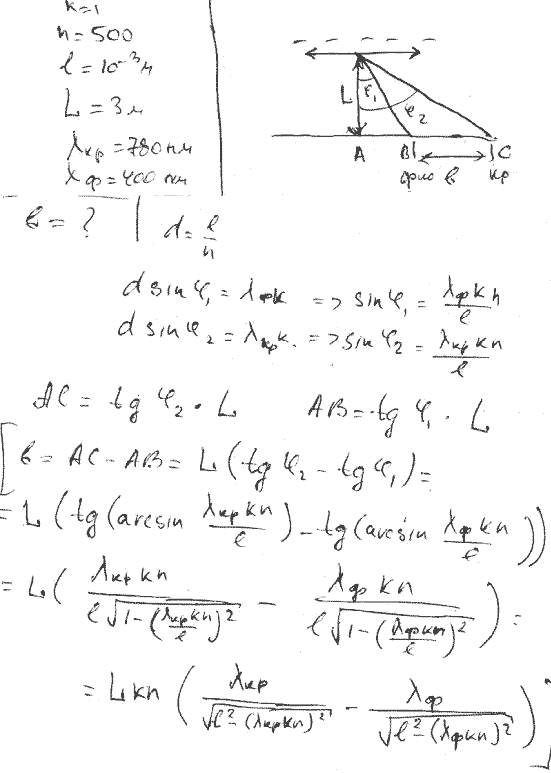 k=1
n=500
l=10⁻³м
L=3м
λкр=780нм
λф=400нм
в=?
d=l/n
L φ₁ φ₂
A B C
фио в кр
d sin φ₁ = λфk => sin φ₁ = λф k n / l
d sin φ₂ = λкр k. => sin φ₂ = λкр k n / l
AC = tg φ₂ · L AB = tg φ₁ · L
[ в = AC - AB = L (tg φ₂ - tg φ₁) =
= L (tg (arcsin λкр k n / l) - tg (arcsin λф k n / l))
= L ( λкр k n / l√(1-(λкр k n / l)²) - λф k n / l√(1-(λф k n / l)²) ) =
= L k n ( λкр / √(l²-(λкр k n)²) - λф / √(l²-(λф k n)²) ) ]